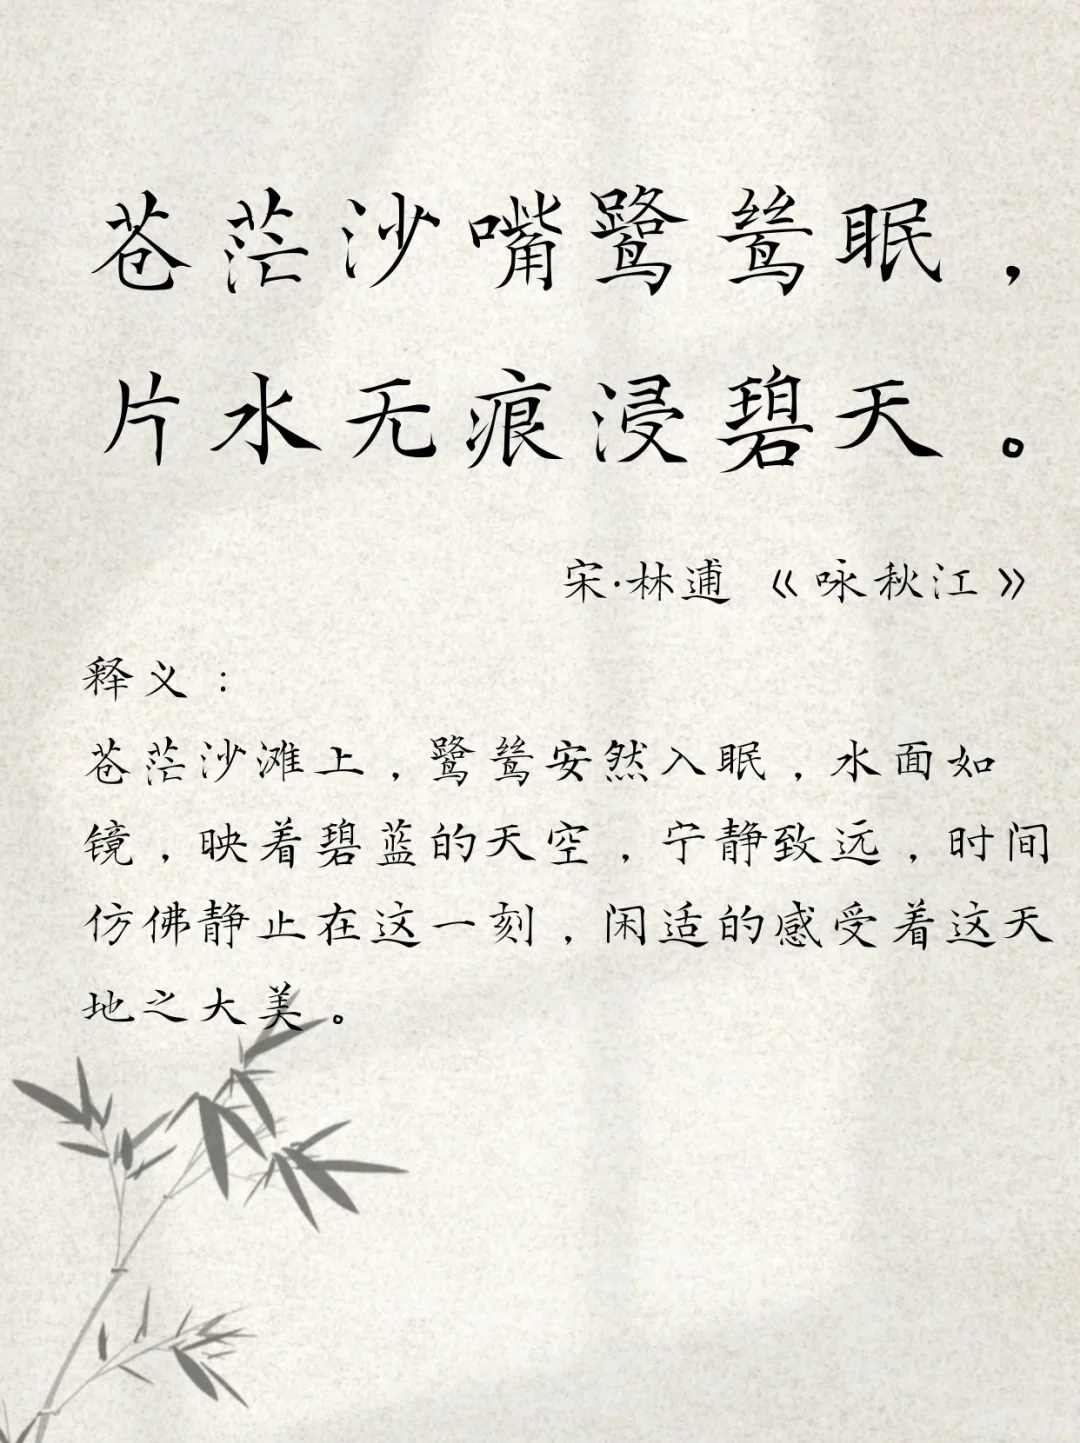 苍茫沙嘴鹭鸶眠，
片水无痕浸碧天。
宋·林逋《咏秋江》
释义：
苍茫沙滩上，鹭鸶安然入眠，水面如
镜，映着碧蓝的天空，宁静致远，时间
仿佛静止在这一刻，闲适的感受着这天
地之大美。